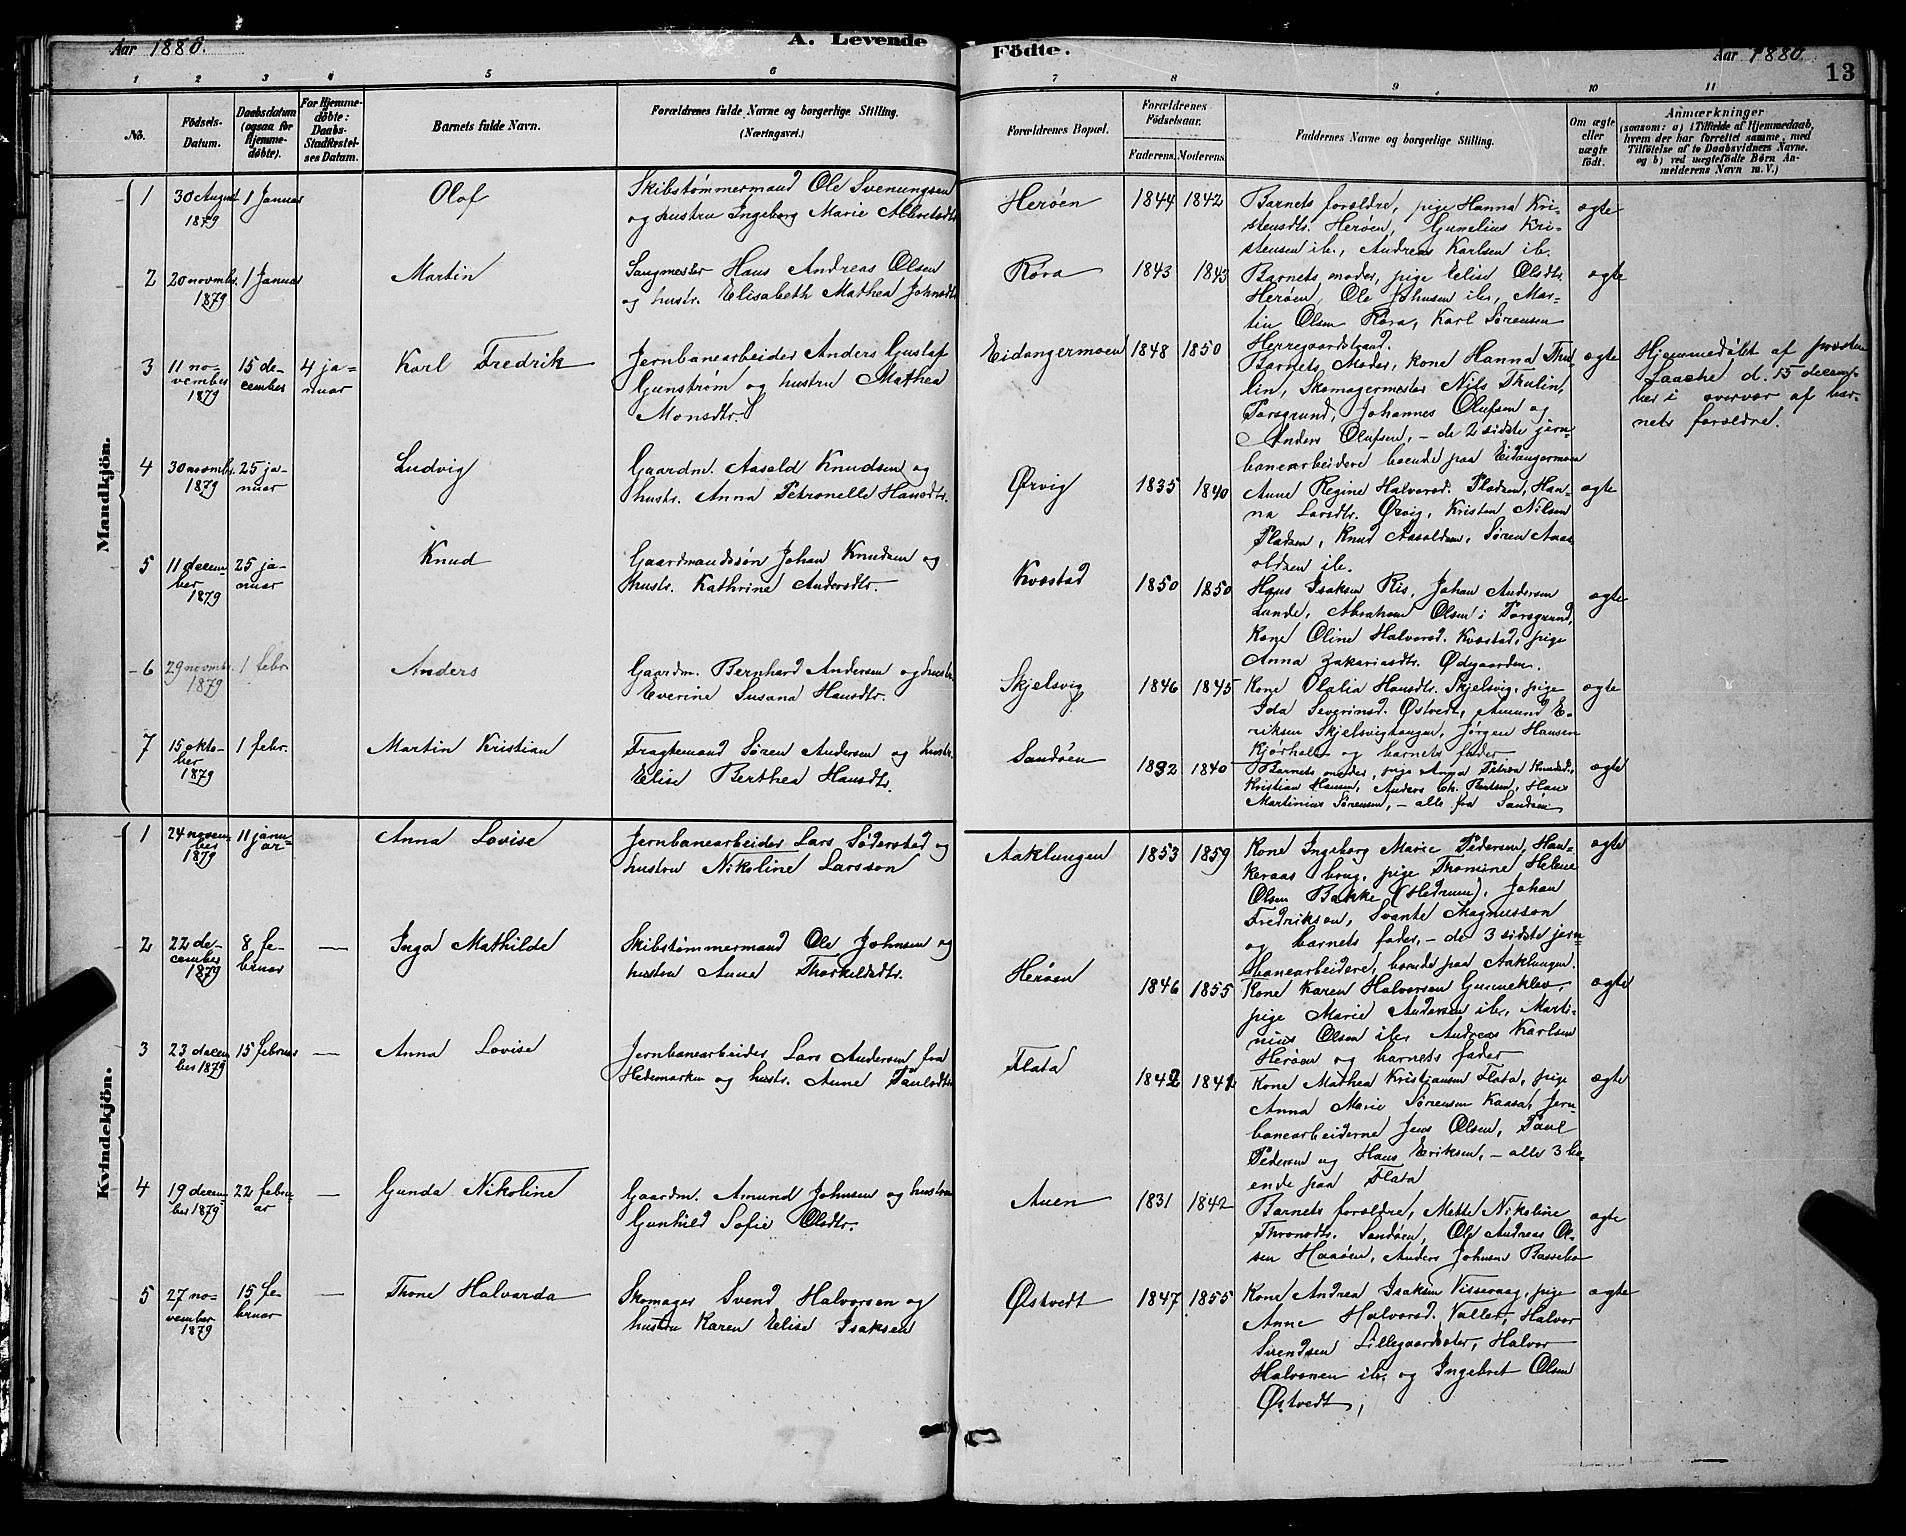 Aar 1880.
A. Levende
Födte.
Aar 1880.
13
1 2 3 4 5 6 7 8 9 10 11
No.
Födsels-
Datum.
Daabsdatum
(ogsaa for
Hjemme-
døbte).
For Hjemme-
döbte:
Daabs-
Stadfæstel-
ses Datum.
Barnets fulde Navn.
Forældrenes fulde Navne og borgerlige Stilling.
(Næringsvei.)
Forældrenes Bopæl.
Forældrenes
Födselsaar.
Faderens. Moderens.
Faddernes Navne og borgerlige Stilling.
Om ægte
eller
uægte
født.
Anmærkninger
(saasom: a) i Tilfælde af Hjemmedaab,
hvem der har forrettet samme, med
Tilføielse af to Daabsvidners Navne.
og b) ved uægtefödte Børn An-
melderens Navn m. V.)
Mandkjön.
1
30 August
1879
1 Januar
Olaf
Skibstømmermand Ole Svenungsen
og hustru Ingeborg Marie
Herøen
1844
1842
Barnets forældre, pige Hanna Kri-
stensdtr. Herøen, Gunelius Kri-
stensen ib., Andreas Karlsen ib.
ægte
2
20 novmbr.
1879
1 Januar
Martin
Saugmester Hans Andreas Olsen
og hustr. Elisabeth Mathea Johnsdtr
Røra
1843
1843
Barnets moder, pige Elise Olsdtr.
Herøen, Ole Johnsen ib., Mar-
tin Olsen Røra, Karl Sørensen
Herregaardstrand.
ægte
3
11 no-
vember
1879
15 de-
cember
4 ja-
nuar
Karl Fredrik
Jernbanearbeider Anders Gustaf
Gunstrøm og hustru Mathea
Monsdtr.
Eidangermoen
1848
1850
Barnets Moder, kone Hanna Thu-
lin, Skomagermester Nils Thulin,
Porsgrund, Johannes Olufsen og
Anders Olufsen, - de 2 sidste jern-
banearbeidere boende paa Eidangermoen
ægte
Hjemmedøbt af præsten
Laache d. 15 decem-
ber i overvær af bar-
nets forældre.
4
30 novmbr.
1879
25 ja-
nuar
Ludvig
Gaardm. Aasold Knudsen og
hustr. Anna Petronelle Hansdtr.
Ørvig
1835
1840
Anne Regine Halvorsd. Pladsen, Han-
na Larsdtr. Ørvig, Kristen Nilsen
Pladsen, Knud Aasoldsen, Søren Aas-
oldsen ib.
ægte
5
11 decem-
ber
1879
25 ja-
nuar
Knud
Gaardmandssøn Johan Knudsen og
hustr. Kathrine Andersdtr.
Kvæstad
1850
1850
Hans Isaksen Ris, Johan Andersen
Lunde, Abraham Olsen i Porsgrund,
Kone Oline Halvorsd. Kvæstad, pige
Anna Zakariasdtr. Ødegaarden.
ægte
6
29 novmbr.
1879
1 febr.
Anders
Gaardm. Bernhard Andersen og hustr.
Everine Susana Hansdtr.
Skjelsvig
1846
1845
Kone Olalia Hansdtr. Skjelsvig, pige
Ida Severinsd. Østvedt, Amund E-
riksen Skjelsvigtangen, Jørgen Hansen
Kjørholt og barnets fader
ægte
7
15 okto-
ber
1879
1 febr.
Martin Kristian
Fragtemand Søren Andersen og hustr.
Elise Berthea Hansdtr.
Sandøen
1832
1840
Barnets moder, pige Anna Petrea Knudsdtr.,
Kristian Hansen, Anders Chr. Bentsen, Hans
Martinius Sørensen, - alle fra Sandøen
ægte
Kvindekjön.
1
24 novem-
ber
1879
11 janu-
ar
Anna Lovise
Jernbanearbeider Lars Søderstad og
hustru Nikoline Larsson
Aaklungen
1853
1859
Kone Ingeborg Marie Pedersen, Han-
keraas brug, pige Thomine Helene
Olsen Bakke (Hedrum), Johan
Fredriksen, Svante Magnusson
og barnets fader, - de 3 sidste jern-
banearbeidere, boende paa Aaklungen.
ægte
2
22 de-
cember
1879
8 fe-
bruar
—
Inga Mathilde
Skibstømmermand Ole Johnsen og
hustru Anne Thorkildsdtr.
Herøen
1846
1855
Kone Karen Halvorsen Gunneklev,
pige Marie Andersen ib., Marti-
nius Olsen ib., Andreas Karlsen
Herøen og barnets fader
ægte
3
23 decem
ber 1879
15 februar
—
Anna Lovise
Jernbanearbeider Lars Andersen fra
Hedemarken og hustr. Anne Paulsdtr
Flata
1842
1841
Kone Mathea Kristiansen Flata, pige
Anna Marie Sørensen Kaasa, Jern-
banearbeiderne Jens Olsen, Paul
Pedersen og Hans Eriksen, - alle 3 bo-
ende paa Flata
ægte
4
19 decem-
ber 1879
22 febru-
ar
—
Gunda Nikoline
Gaardm. Amund Johnsen og hustru
Gunhild Sofie Olsdtr.
Auen
1831
1842
Barnets forældre, Mette Nikoline
Thronsdtr. Sandøen, Ole Andreas Ol-
sen Haaøen, Anders Johnsen Bassebo
ægte
5
27 no-
vember
1879
15 fe-
bruar
—
Thone Halvarda
Skomager Svend Halvorsen og
hustru Karen Elise Isaksen
Østvedt
1847
1855
Kone Andrea Isaksen Vissevaag, pige
Anne Halvorsd. Valler, Halvor
Svendsen Lillegaardseter, Halvor
Halvorsen ib. og Ingebret Olsen
Østvedt,
ægte